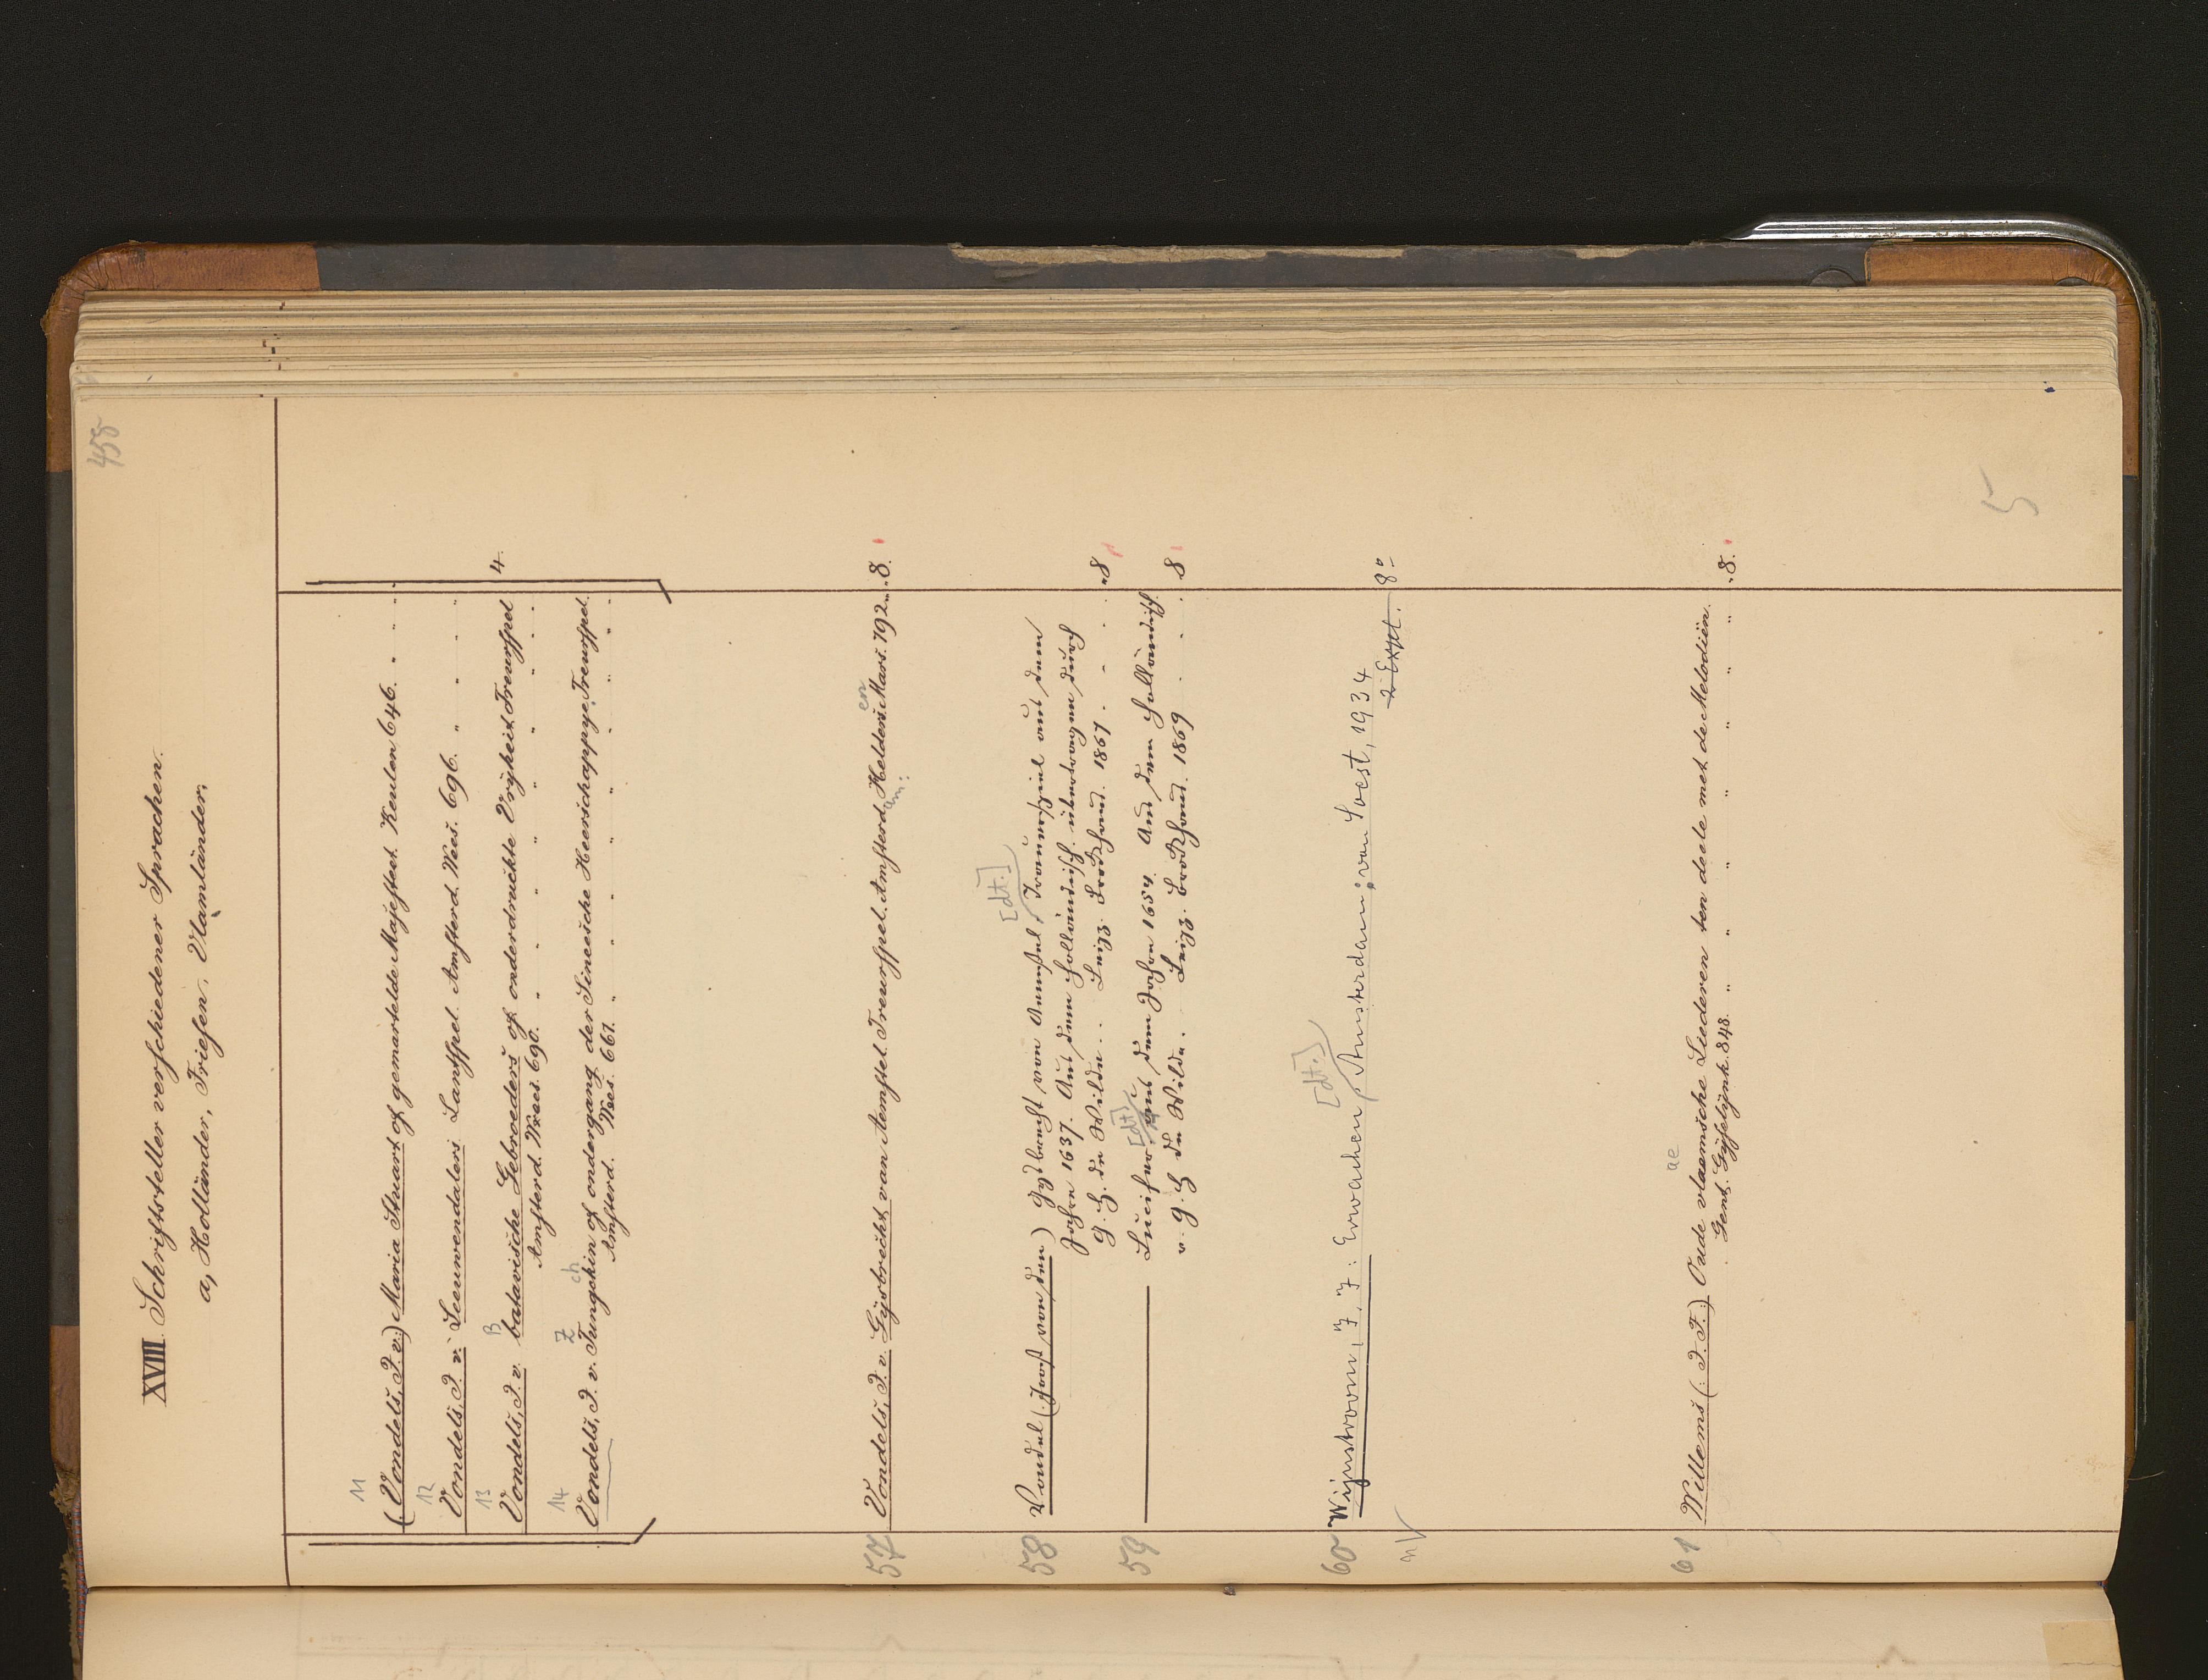 458
XVIII. Schriftsteller verschiedener Sprachen.
a, Holländer, Friesen, Vlamländer.
11
(Vondels, J. v.) Maria Stuart of gemartelde Majesteit. Keulen 646.
12
Vondels, J. v. Leeuwendalers Lantspel. Amsterd. Wees. 696.
13
B
Vondels, J. v. batavische Gebroeders of onderdruckte Vryheit. Treurspel
Amsterd. Wees. 690.
4.
14
Z ch
Vondels, J. v. Tungekin of ondergang der Sineesche Heerschappye. Treurspel.
Amsterd. Wees. 667.
en
57 Vondels, J. v. Gysbrecht van Aemstel. Treurspel. Amsterd. Helders. Mars. 792. 8.
am:
[dt.]
58 Vondel (Joost van den) Gysbrecht von Aemstel, Trauerspiel aus dem
Jahre 1637. Aus dem Holländisch. übertragen durch
G. H. de Wilde. Leipz. Brockhaus. 1867. 8
[dt.]
59 Lucifer aus dem Jahre 1654. Aus dem Holländisch
v. G. H de Wilde. Leipz. Brockhaus. 1869 8
[dt.]
60 Wijnstroom, J. J.: Erwachen, Amsterdam; van Soest, 1934
n V
2 Expl. 8°
ae
61 Willems (: J. F.) Oude vlaemsche Liederen ten deele met de Melodiën.
Gent. Gyselynk. 848. 8.
5